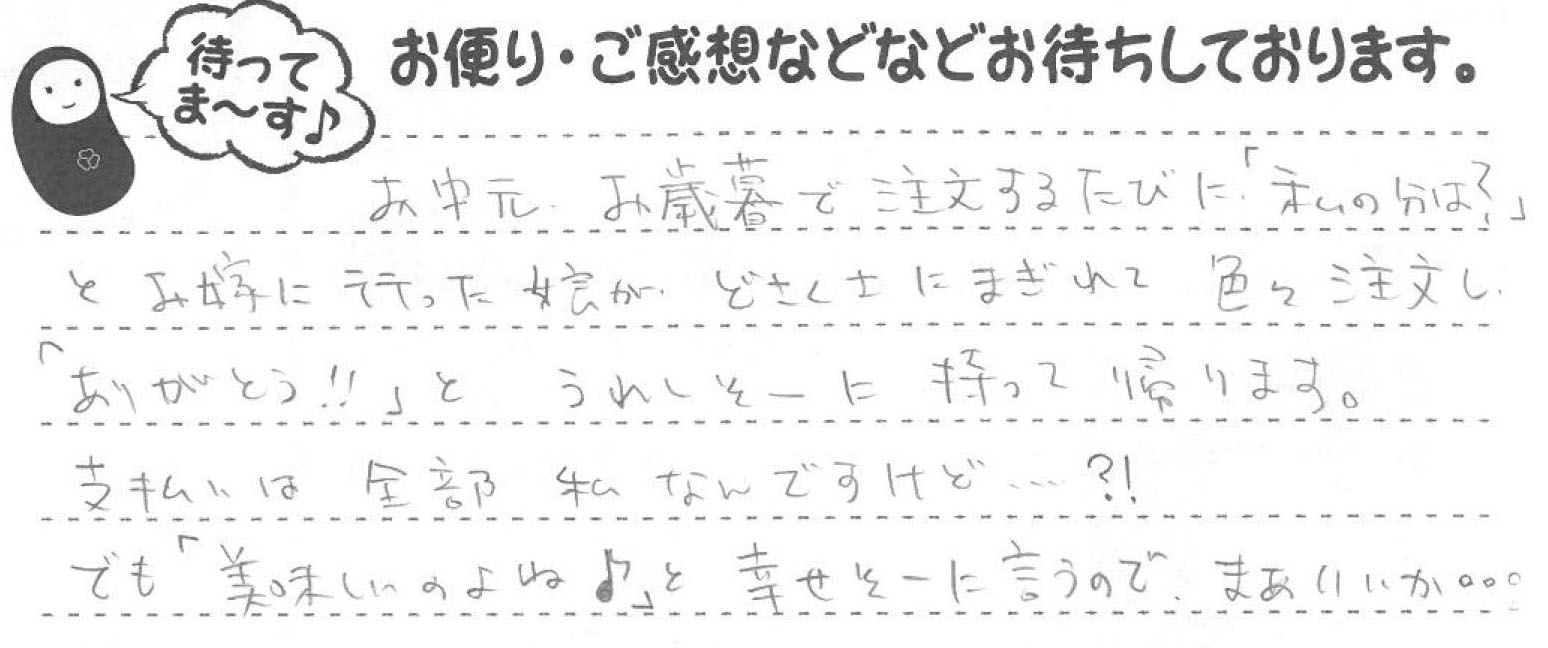 待って
ま〜す♪
お便り・ご感想などなどお待ちしております。
お中元、お歳暮で注文するたびに、「私の分は?」
とお嫁に行った娘が、どさくさにまぎれて色々注文し、
「ありがとう!!」と うれしそーに 持って帰ります。
支払いは 全部 私なんですけど…?!
でも「美味しいのよね♪」と 幸せそーに言うので、まぁいいか。。。